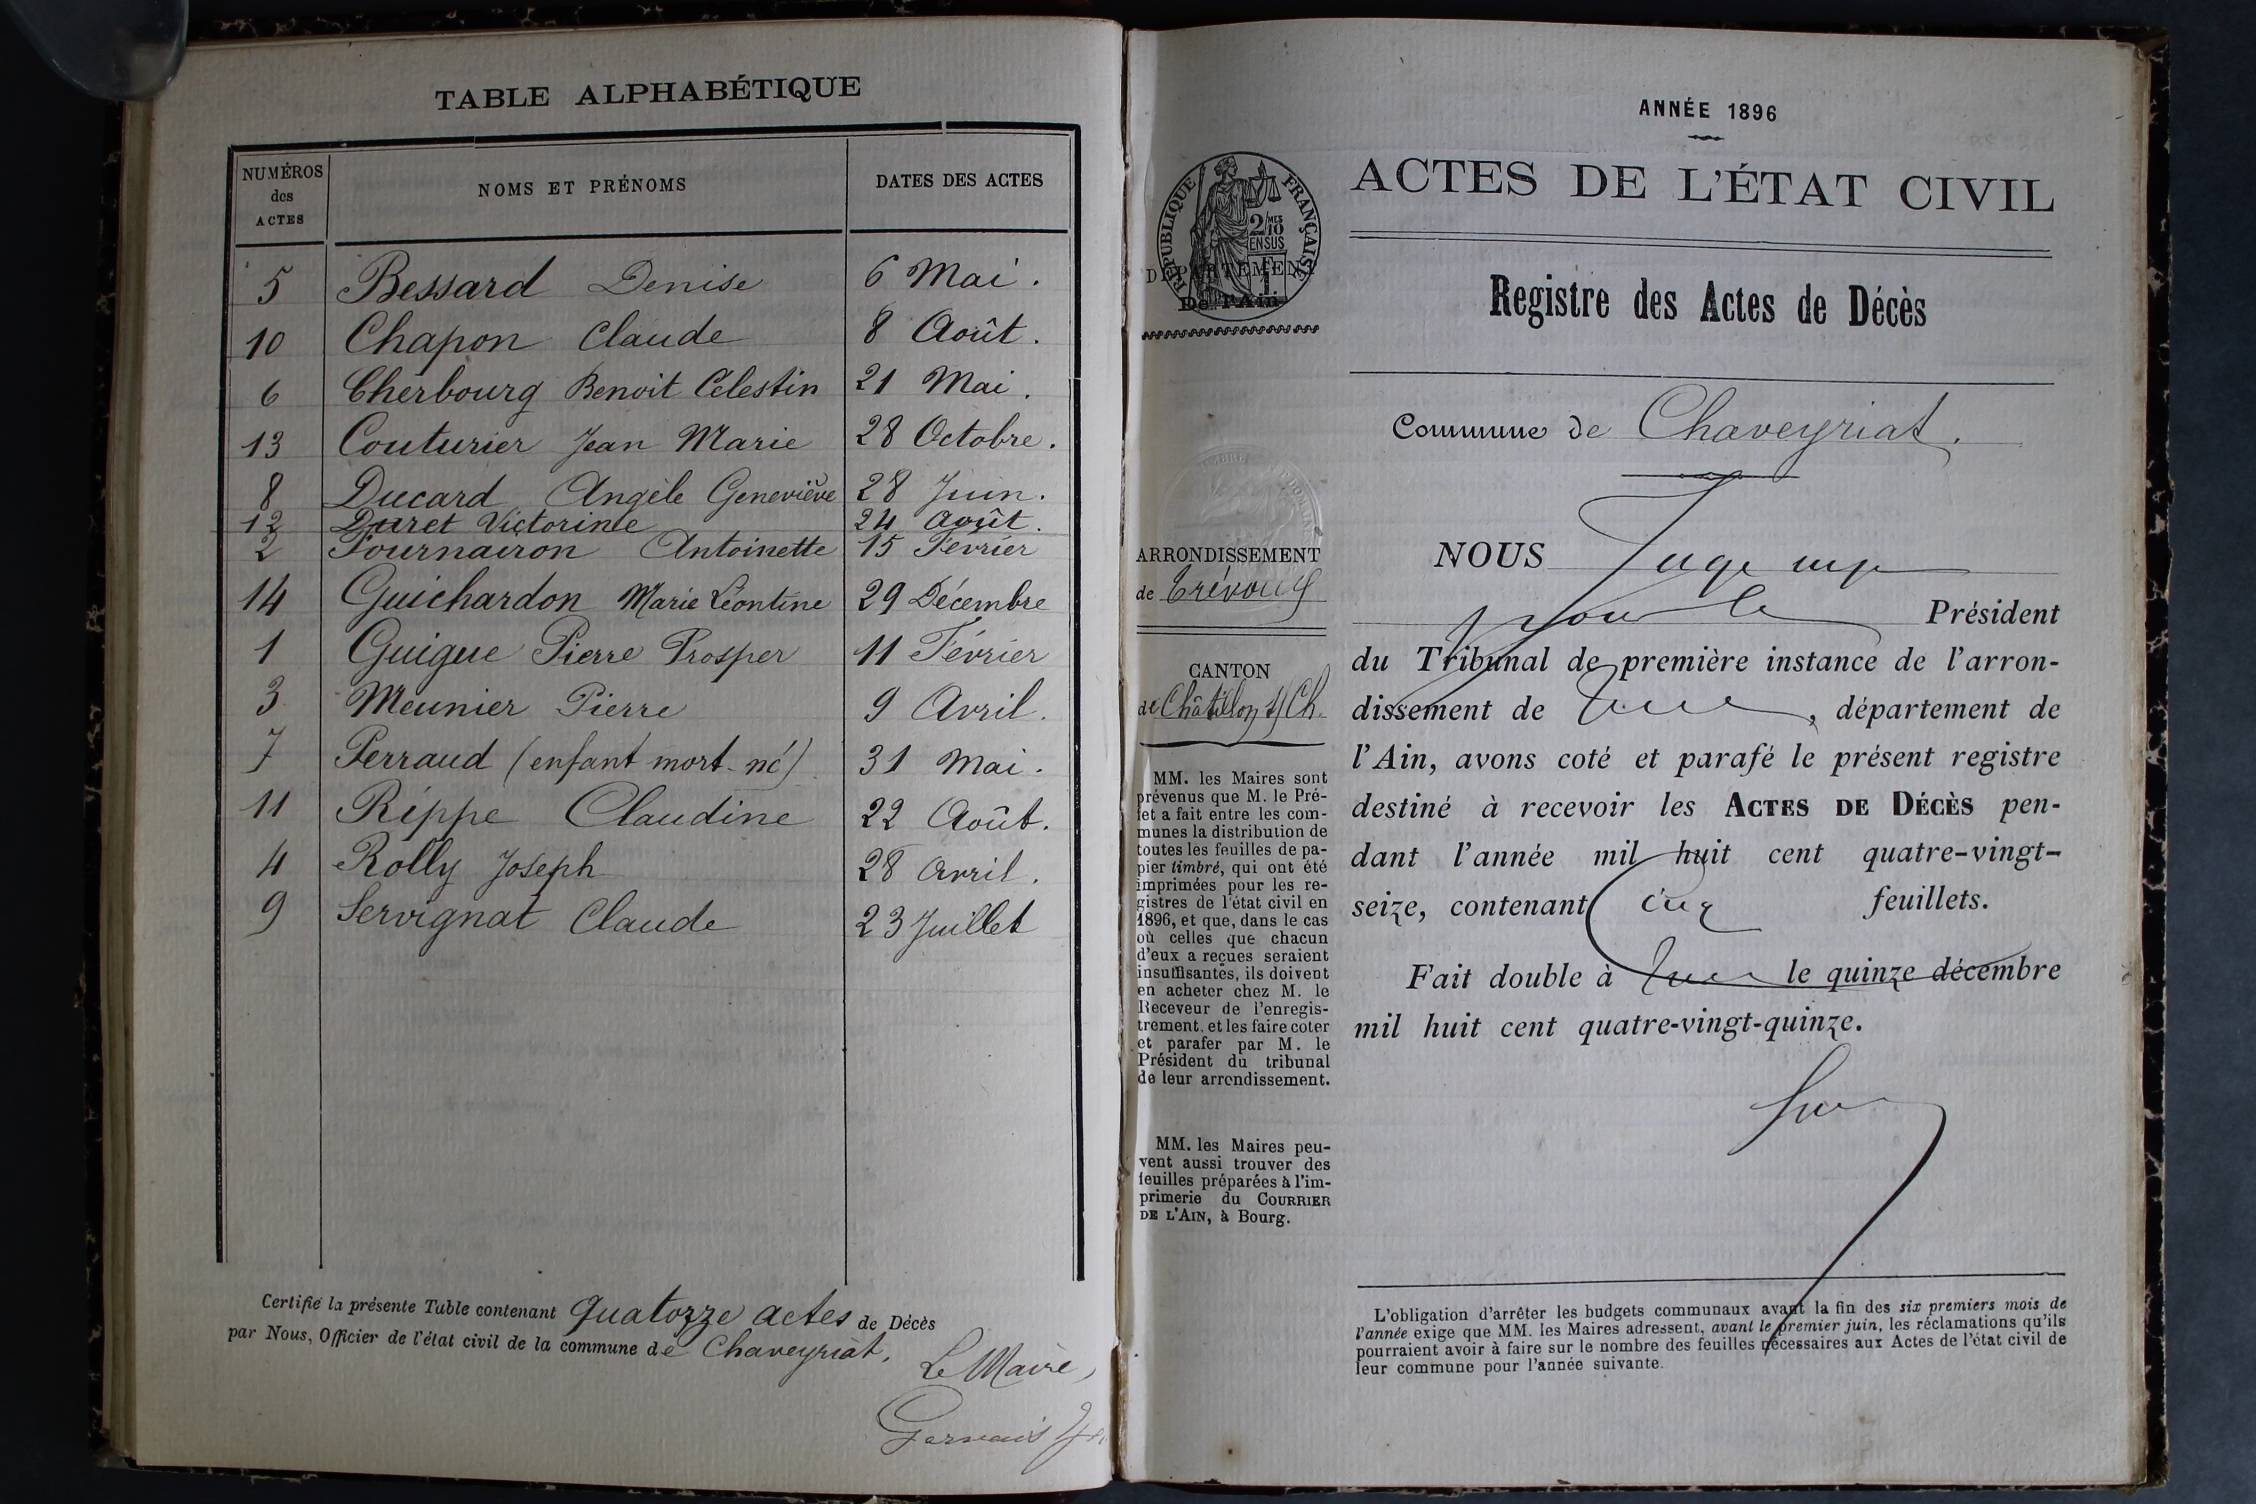 TABLE ALPHABÉTIQUE
NUMÉROS des ACTES NOMS ET PRÉNOMS DATES DES ACTES
5 Bessard Denise 6 Mai.
10 Chapon Claude 8 Août.
6 Cherbourg Benoit Célestin 21 Mai.
13 Couturier Jean Marie 28 Octobre.
8 Ducard Angèle Geneviève 28 Juin.
12 Duret Victorine 24 Août.
2 Fournairon Antoinette 15 Février
14 Guichardon Marie Léontine 29 Décembre
1 Guigue Pierre Prosper 11 Février
3 Meunier Pierre 9 Avril.
7 Perraud (enfant mort-né) 31 Mai.
11 Rippe Claudine 22 Août.
4 Rolly Joseph 28 Avril.
9 Servignat Claude 23 Juillet
Certifié la présente Table contenant quatorze actes de Décès
par Nous, Officier de l'état civil de la commune de Chaveyriat.
Le Maire,
Gervais
ANNÉE 1896
RÉPUBLIQUE FRANÇAISE
2/10 MES
EN SUS
DÉPARTEMENT
De l'Ain
ARRONDISSEMENT
de Trévoux
CANTON
de Châtillon s/Ch.
MM. les Maires sont
prévenus que M. le Pré-
fet a fait entre les com-
munes la distribution de
toutes les feuilles de pa-
pier timbré, qui ont été
imprimées pour les re-
gistres de l'état civil en
1896, et que, dans le cas
où celles que chacun
d'eux a reçues seraient
insuffisantes, ils doivent
en acheter chez M. le
Receveur de l'enregis-
trement, et les faire coter
et parafer par M. le
Président du tribunal
de leur arrondissement.
MM. les Maires peu-
vent aussi trouver des
feuilles préparées à l'im-
primerie du COURRIER
DE L'AIN, à Bourg.
ACTES DE L'ÉTAT CIVIL
Registre des Actes de Décès
Commune de Chaveyriat.
NOUS Juge
pour le Président
du Tribunal de première instance de l'arron-
dissement de , département de
l'Ain, avons coté et parafé le présent registre
destiné à recevoir les ACTES DE DÉCÈS pen-
dant l'année mil huit cent quatre-vingt-
seize, contenant cinq feuillets.
Fait double à le quinze décembre
mil huit cent quatre-vingt-quinze.
L'obligation d'arrêter les budgets communaux avant la fin des six premiers mois de
l'année exige que MM. les Maires adressent, avant le premier juin, les réclamations qu'ils
pourraient avoir à faire sur le nombre des feuilles nécessaires aux Actes de l'état civil de
leur commune pour l'année suivante.